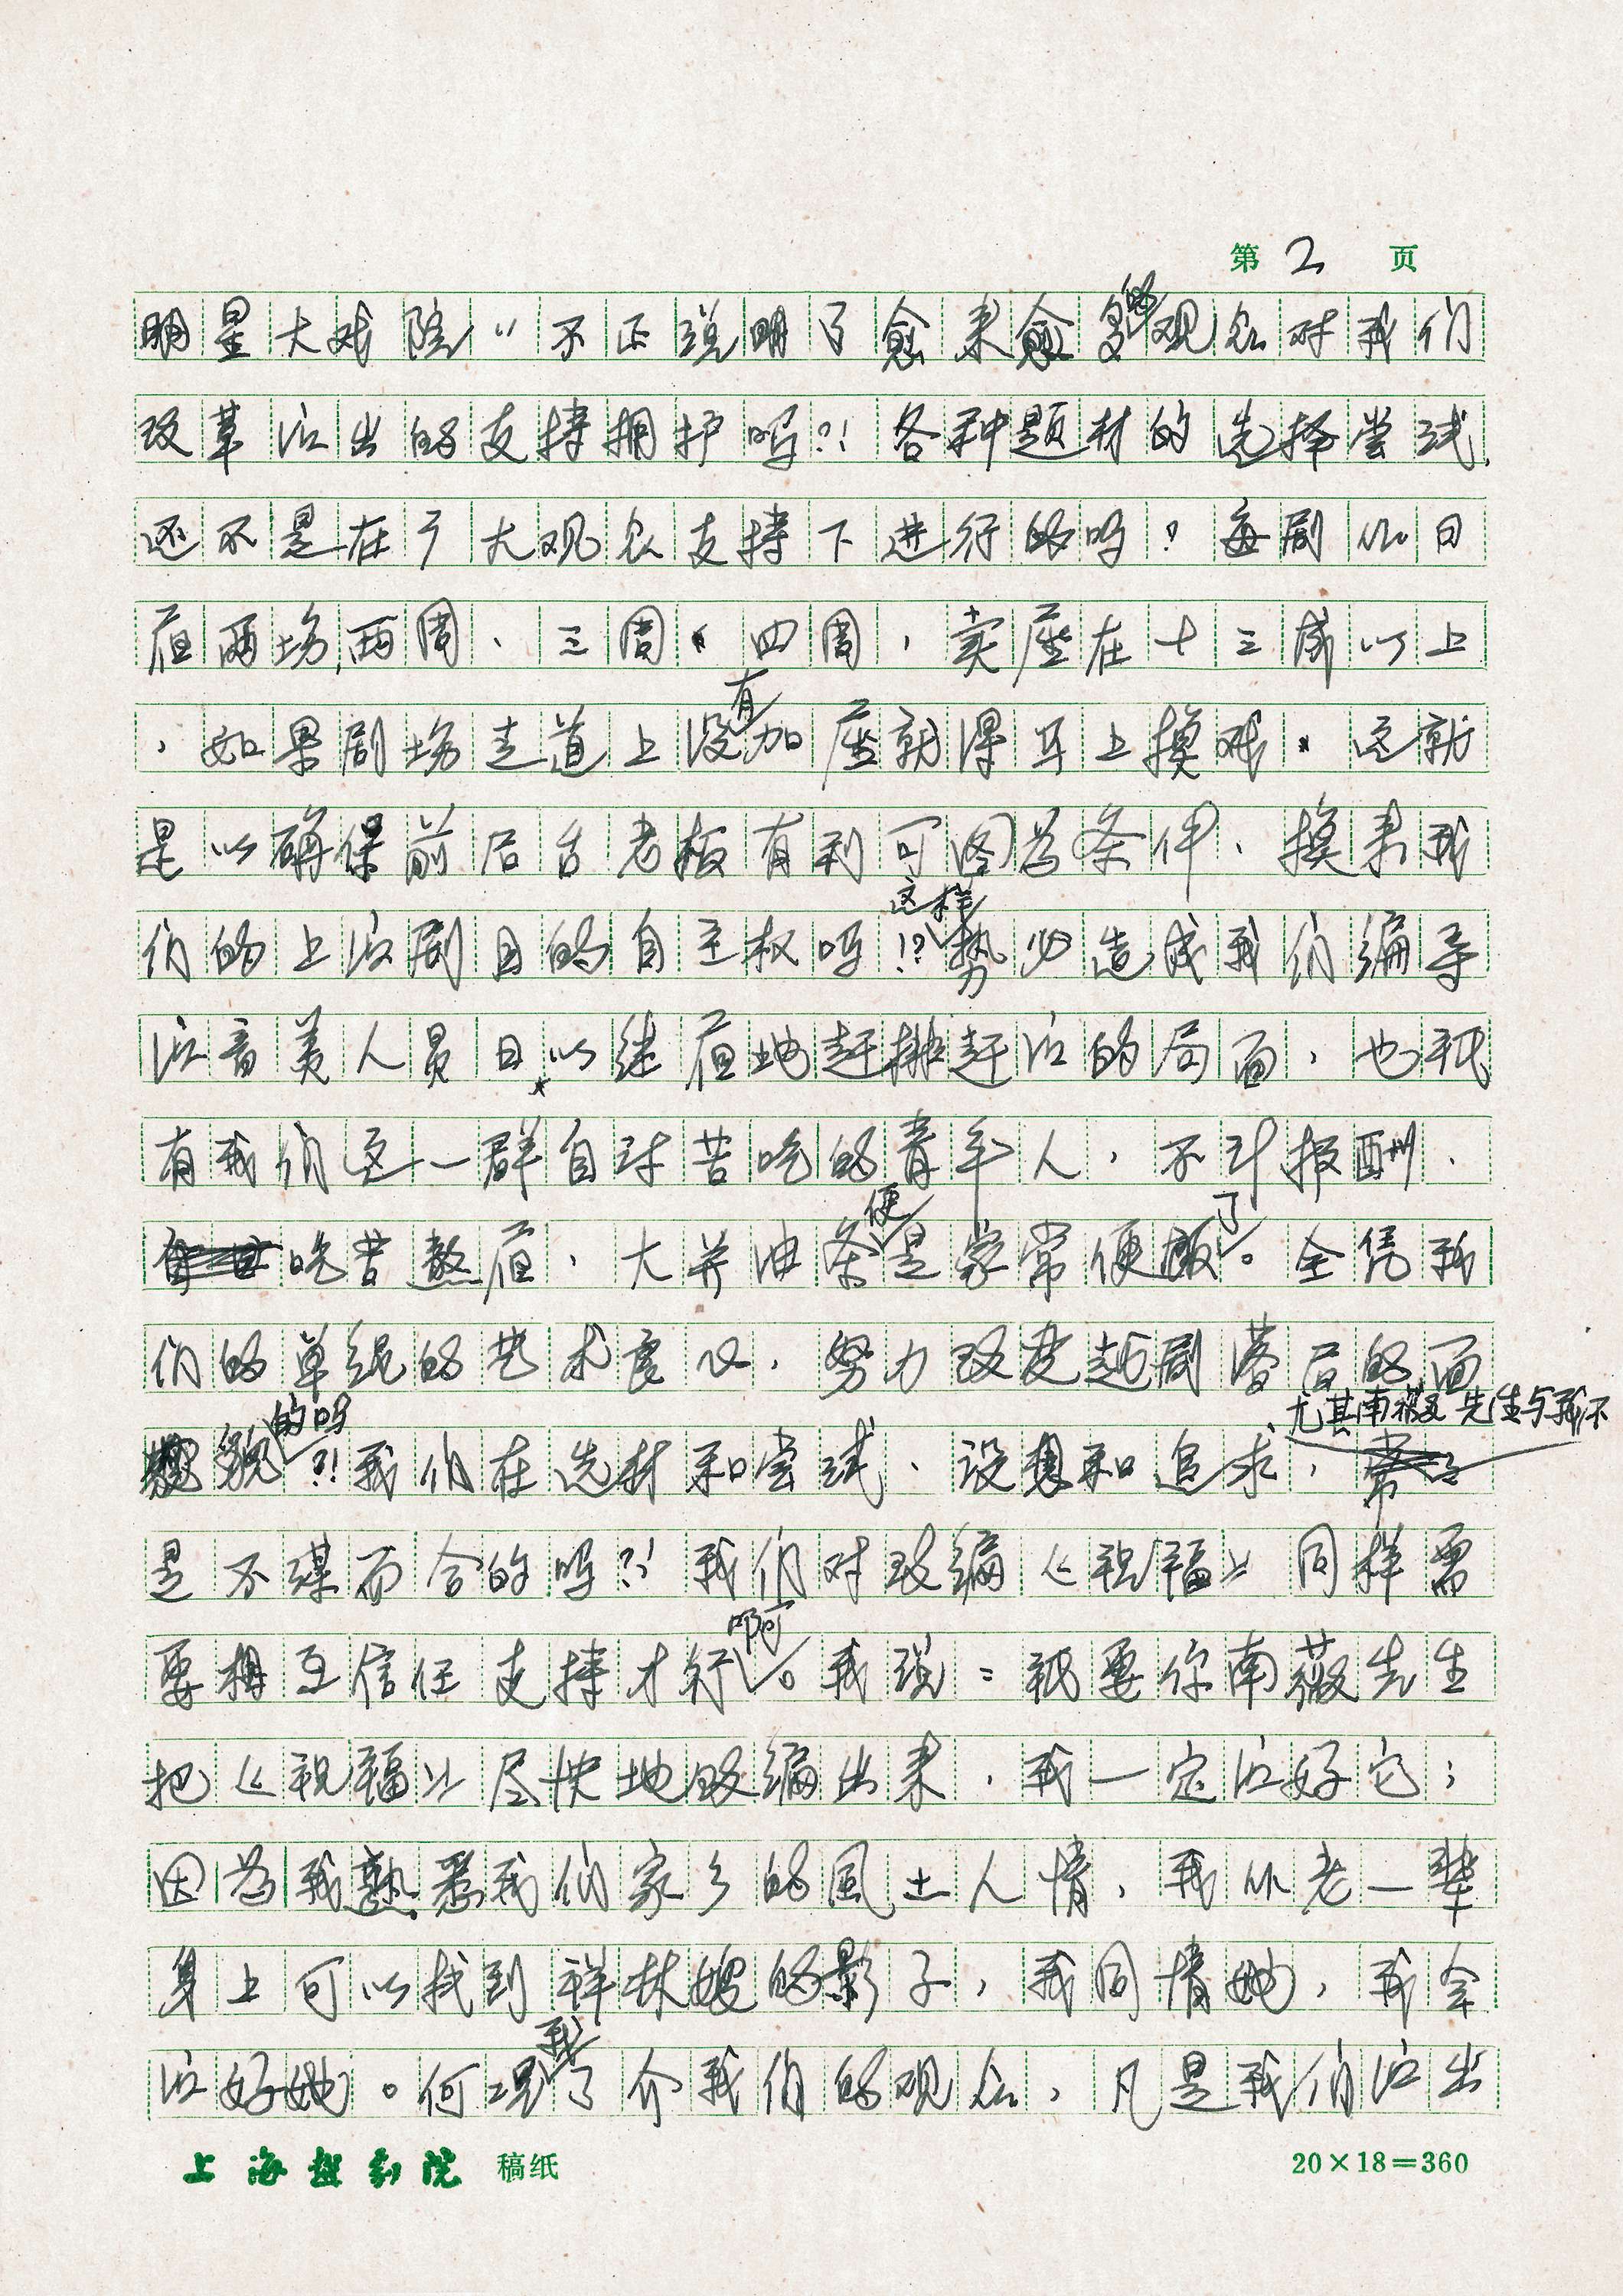 第2页
明星大戏院"不正说明了愈来愈多的观众对我们
改革演出的支持拥护吗?!各种题材的选择尝试,
还不是在广大观众支持下进行的吗?每剧从日
夜两场,两周、三周、四周,卖座在十三成以上
,如果剧场走道上没有加座就得马上换戏。这就
是以确保前后台老板有利可图为条件、换来我
们的上演剧目的自主权吗!?这样势必造成我们编导
演音美人员日以继夜地赶排赶演的局面,也祇
有我们这一群自讨苦吃的青年人,不计报酬、
吃苦熬夜,大并油条便是家常便饭了。全凭我
们的单纯的艺术良心,努力改变越剧落后的面
貌的吗?!我们在选材和尝试、设想和追求,尤其南薇先生与我不
是不谋而合的吗?!我们对改编《祝福》同样需
要相互信任支持才行啊。我说:祇要你南薇先生
把《祝福》尽快地改编出来,我一定演好它;
因为我熟悉我们家乡的風土人情,我从老一辈
身上可以找到祥林嫂的影子,我同情她,我会
演好她。何况我了介我们的观众,凡是我们演出
上海越剧院 稿纸 20×18=360